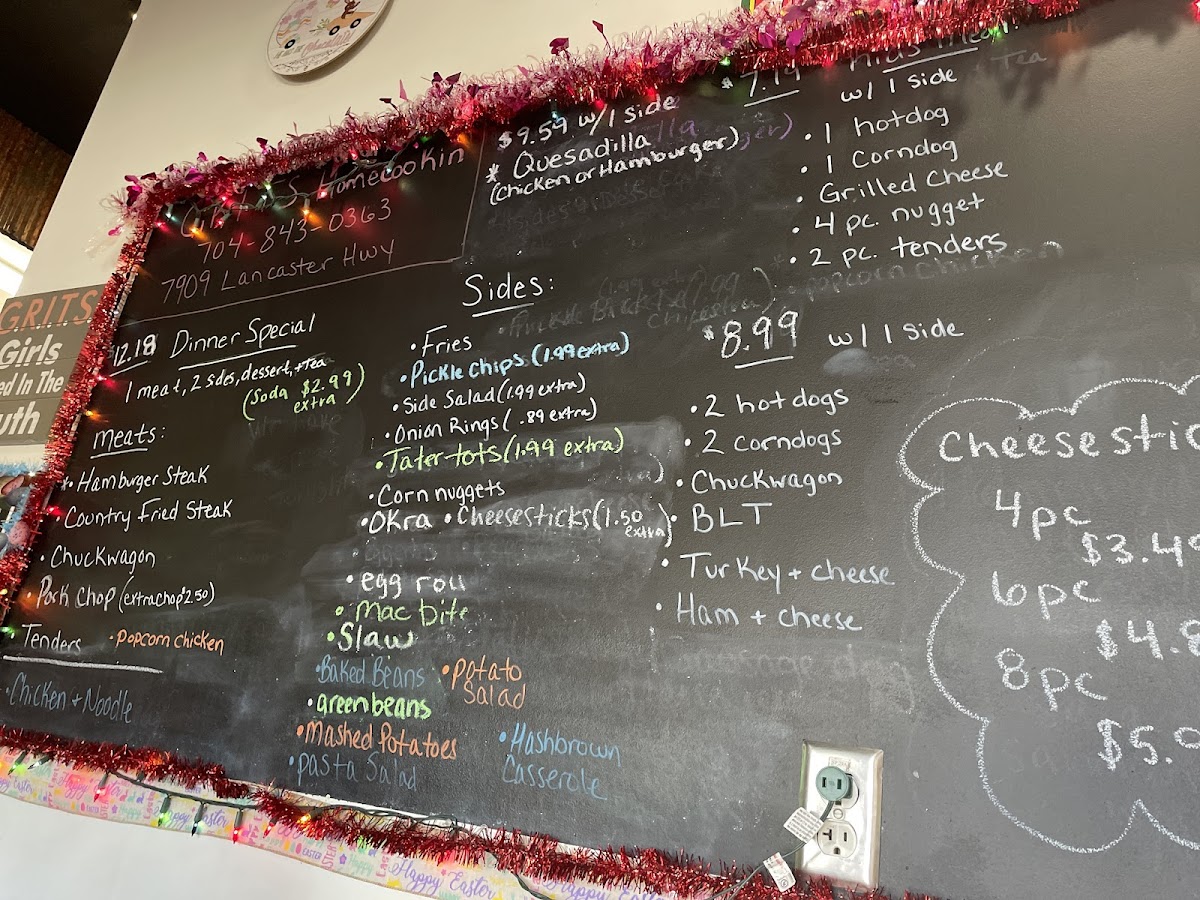 Homecookin
704-843-0363
7909 Lancaster Hwy
$9.59 w/1 side
* Quesadilla
(Chicken or Hamburger)
$7.14
w/ 1 side
Tea
• 1 hotdog
• 1 Corndog
• Grilled Cheese
• 4 pc. nugget
• 2 pc. tenders
popcorn chicken
GRITS
Girls
ed In The
uth
12.18 Dinner Special
1 meat, 2 sides, dessert, + Tea
(Soda $2.99
extra)
meats:
• Hamburger Steak
• Country Fried Steak
• Chuckwagon
• Pork Chop (extra chop 2.50)
Tenders • popcorn chicken
• Chicken + Noodle
Sides:
• Fries
• Pickle Chips (1.99 extra)
• Side Salad (1.99 extra)
• Onion Rings ( .89 extra)
• Tater-tots (1.99 extra)
• Corn nuggets
• Okra • Cheesesticks (1.50
extra)
• egg roll
• Mac bite
• Slaw
• Baked Beans • potato
Salad
• greenbeans
• Mashed Potatoes • Hashbrown
Casserole
• pasta Salad
$8.99 w/ 1 side
• 2 hotdogs
• 2 corndogs
• Chuckwagon
• BLT
• Turkey + cheese
• Ham + cheese
Cheesestic
4pc
$3.49
6pc
$4.8
8pc
$5.9
Happy Easter
Happy Easter
Happy Easter